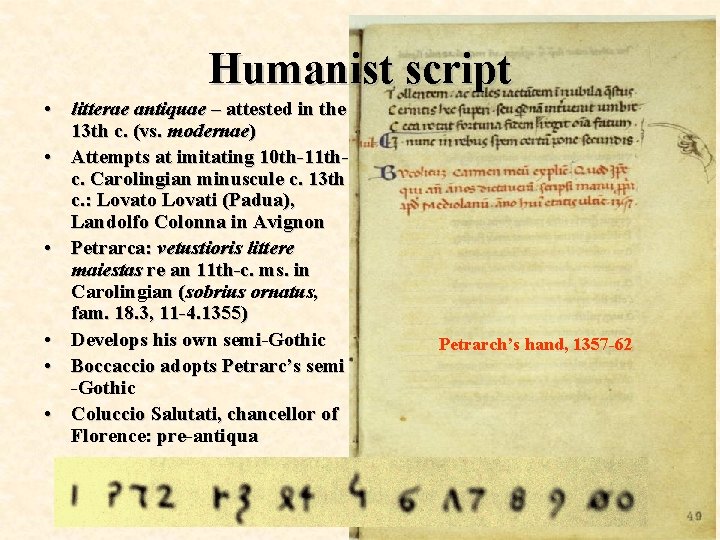 Humanist script
• litterae antiquae – attested in the
13th c. (vs. modernae)
• Attempts at imitating 10th-11th-
c. Carolingian minuscule c. 13th
c.: Lovato Lovati (Padua),
Landolfo Colonna in Avignon
• Petrarca: vetustioris littere
maiestas re an 11th-c. ms. in
Carolingian (sobrius ornatus,
fam. 18.3, 11 -4.1355)
• Develops his own semi-Gothic
• Boccaccio adopts Petrarc’s semi
-Gothic
• Coluccio Salutati, chancellor of
Florence: pre-antiqua
Tollentem. ac tales iactātem ī nubila
Cernitis hec super. inveniet umbre
Ceca
nunc in rebus spem certū pone secundis
Bucolicū carmen meū explic
qui an̄ ānos dictaverā. scripsi manu
apd̄ mediolanū. āno
Petrarch’s hand, 1357-62
1 2 6 7 8 9
49